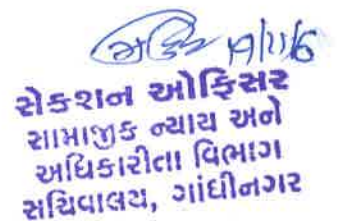 19/11/6
સેક્શન ઓફિસર
સામાજીક ન્યાય અને
અધિકારીતા વિભાગ
સચિવાલય, ગાંધીનગર